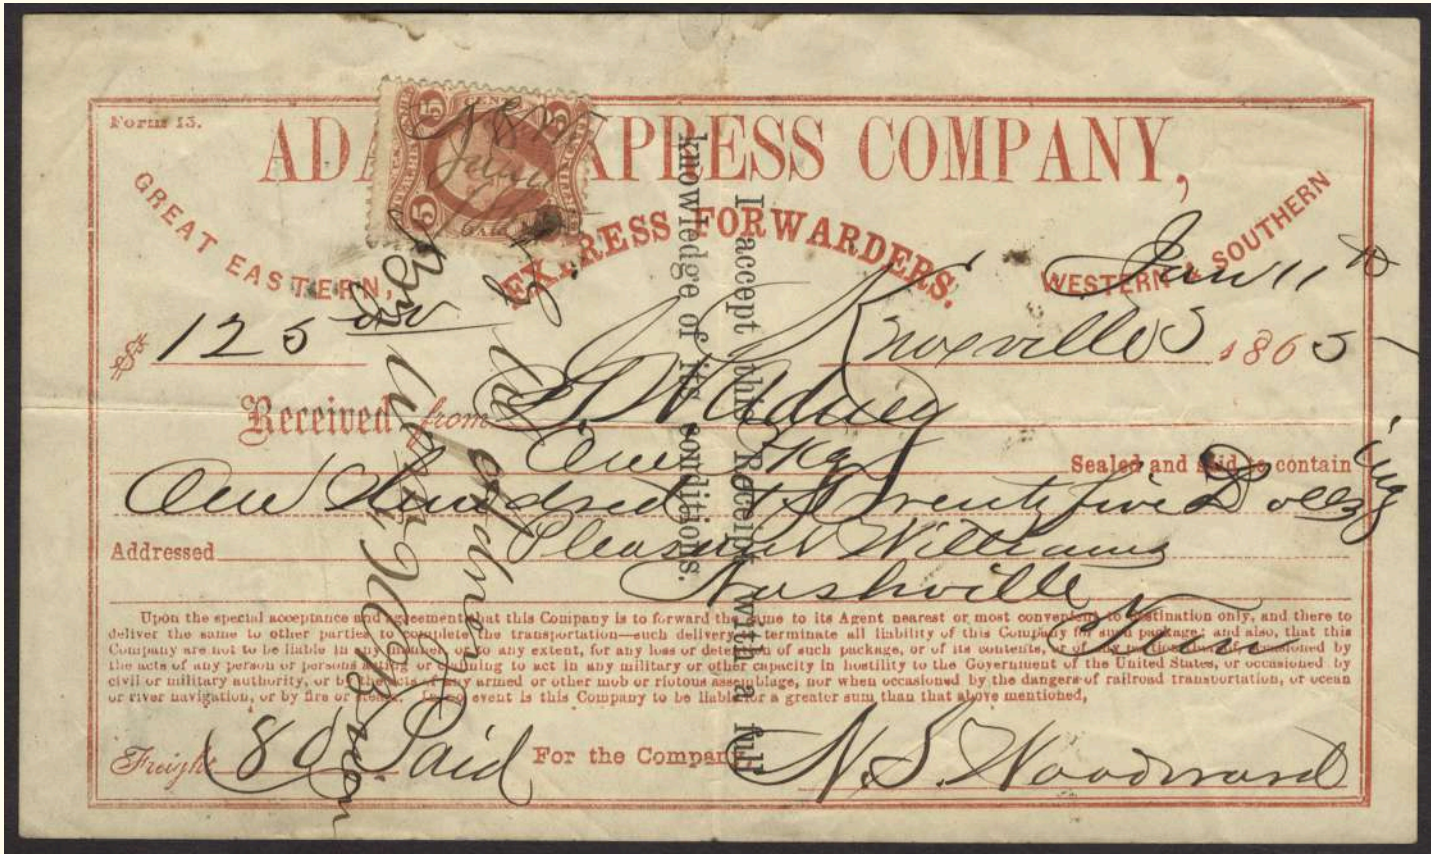 Form 13.
ADA EXPRESS COMPANY,
GREAT EASTERN,
EXPRESS FORWARDERS.
WESTERN & SOUTHERN
Jan 11th
$ 125 00/100
Knoxville 1865
Received from G. W. Adney
One Pkg Sealed and said to contain ing
One Hundred & Twenty five Dollars
Addressed Pleasant Williams
Nashville
Tenn
Upon the special acceptance and agreement that this Company is to forward the same to its Agent nearest or most convenient to destination only, and there to
deliver the same to other parties to complete the transportation—such delivery to terminate all liability of this Company for such package; and also, that this
Company are not to be liable in any manner, or to any extent, for any loss or detention of such package, or of its contents, or of any portion thereof occasioned by
the acts of any person or persons acting or claiming to act in any military or other capacity in hostility to the Government of the United States, or occasioned by
civil or military authority, or by the acts of any armed or other mob or riotous assemblage, nor when occasioned by the dangers of railroad transportation, or ocean
or river navigation, or by fire or steam. In no event is this Company to be liable for a greater sum than that above mentioned,
Freight 80 Paid For the Company, N. S. Woodward
I accept this Receipt with a full
knowledge of its conditions.
5 5
N S W